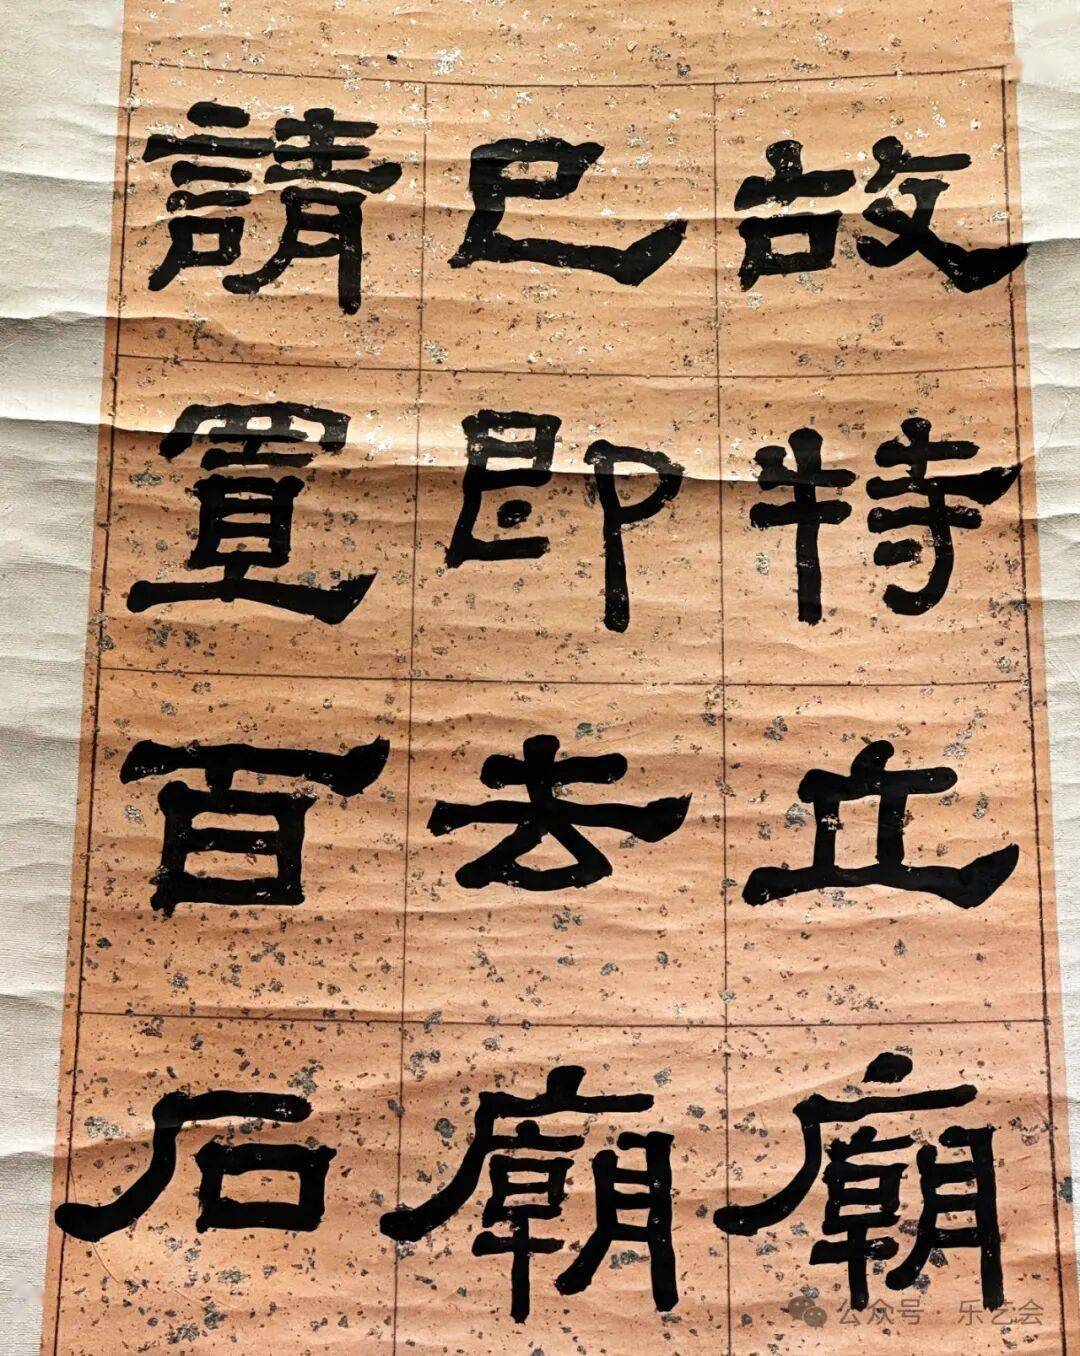 故特立廟
已即去廟
請置百石
公众号 乐艺会